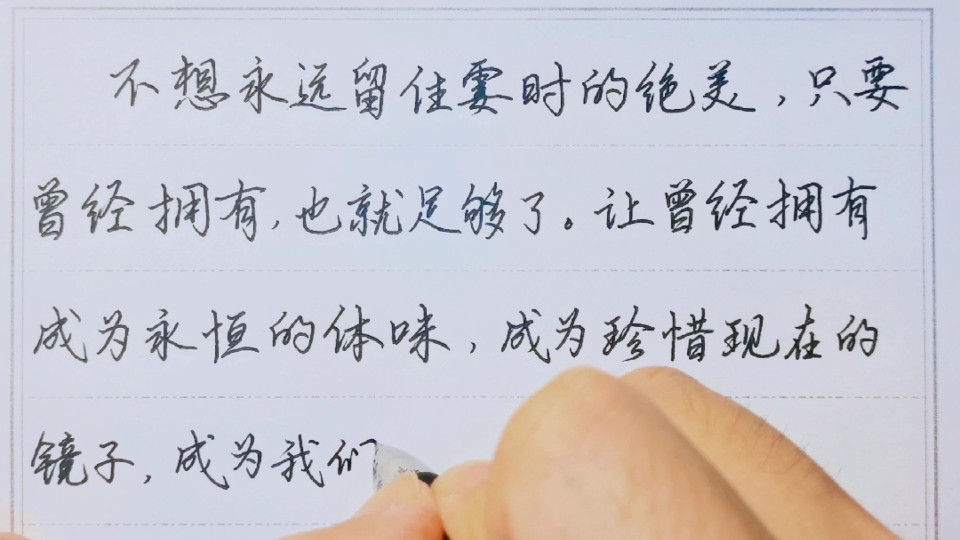 不想永远留住霎时的绝美，只要
曾经拥有，也就足够了。让曾经拥有
成为永恒的体味，成为珍惜现在的
镜子，成为我们